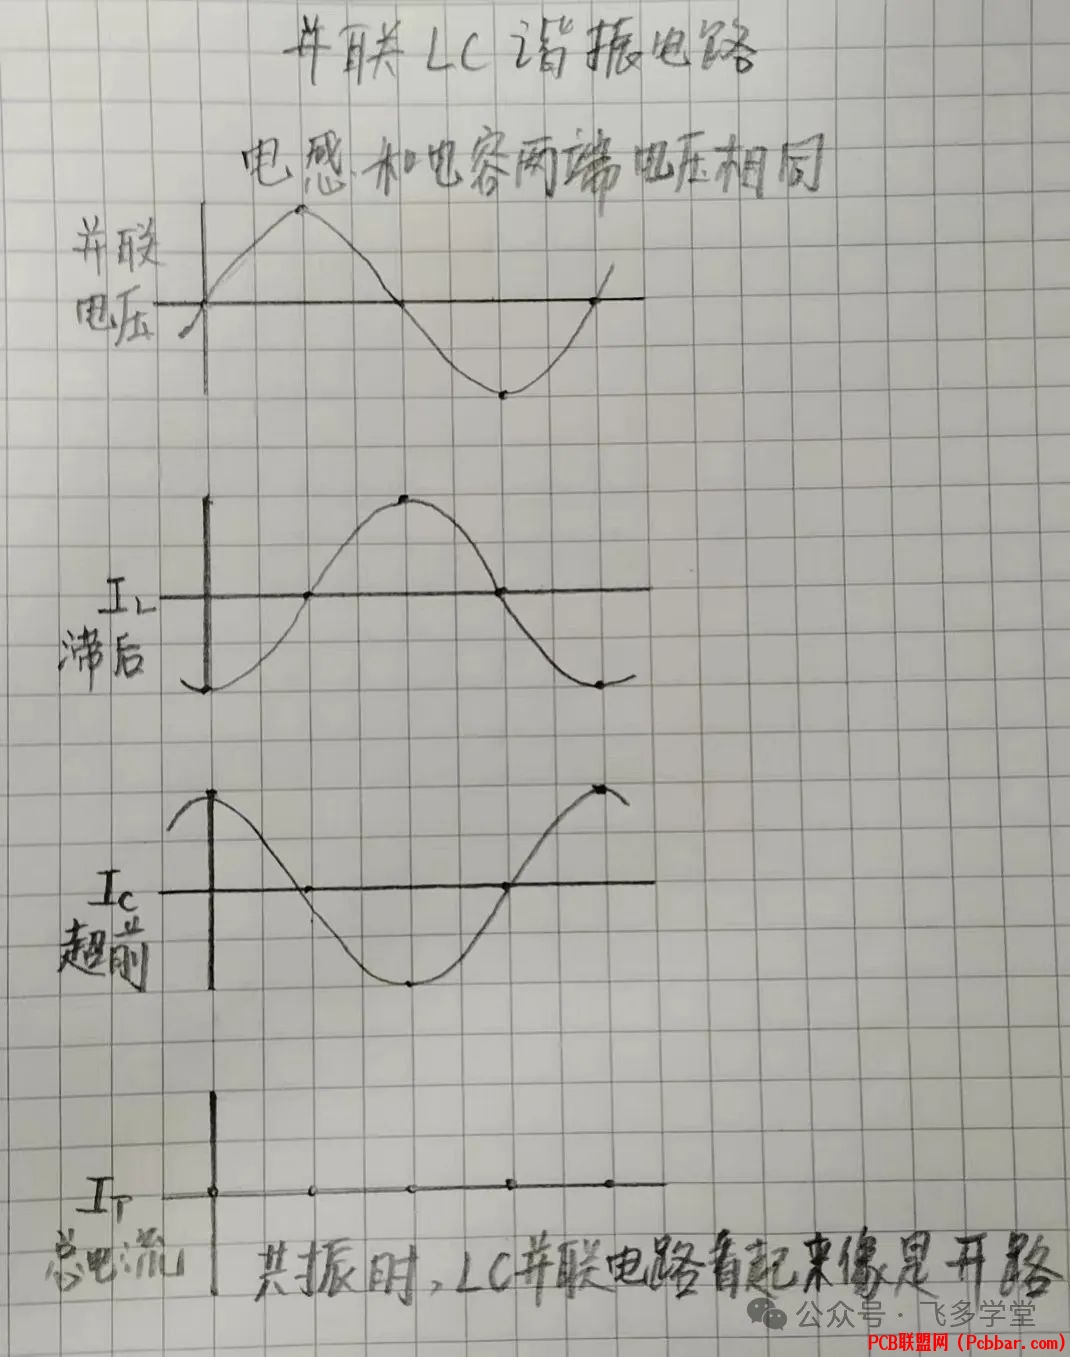 并联LC谐振电路
电感和电容两端电压相同
并联
电压
IL
滞后
IC
超前
IT
总电流
共振时,LC并联电路看起来像是开路
公众号·飞多学堂
PCB联盟网(Pcbbar.com)